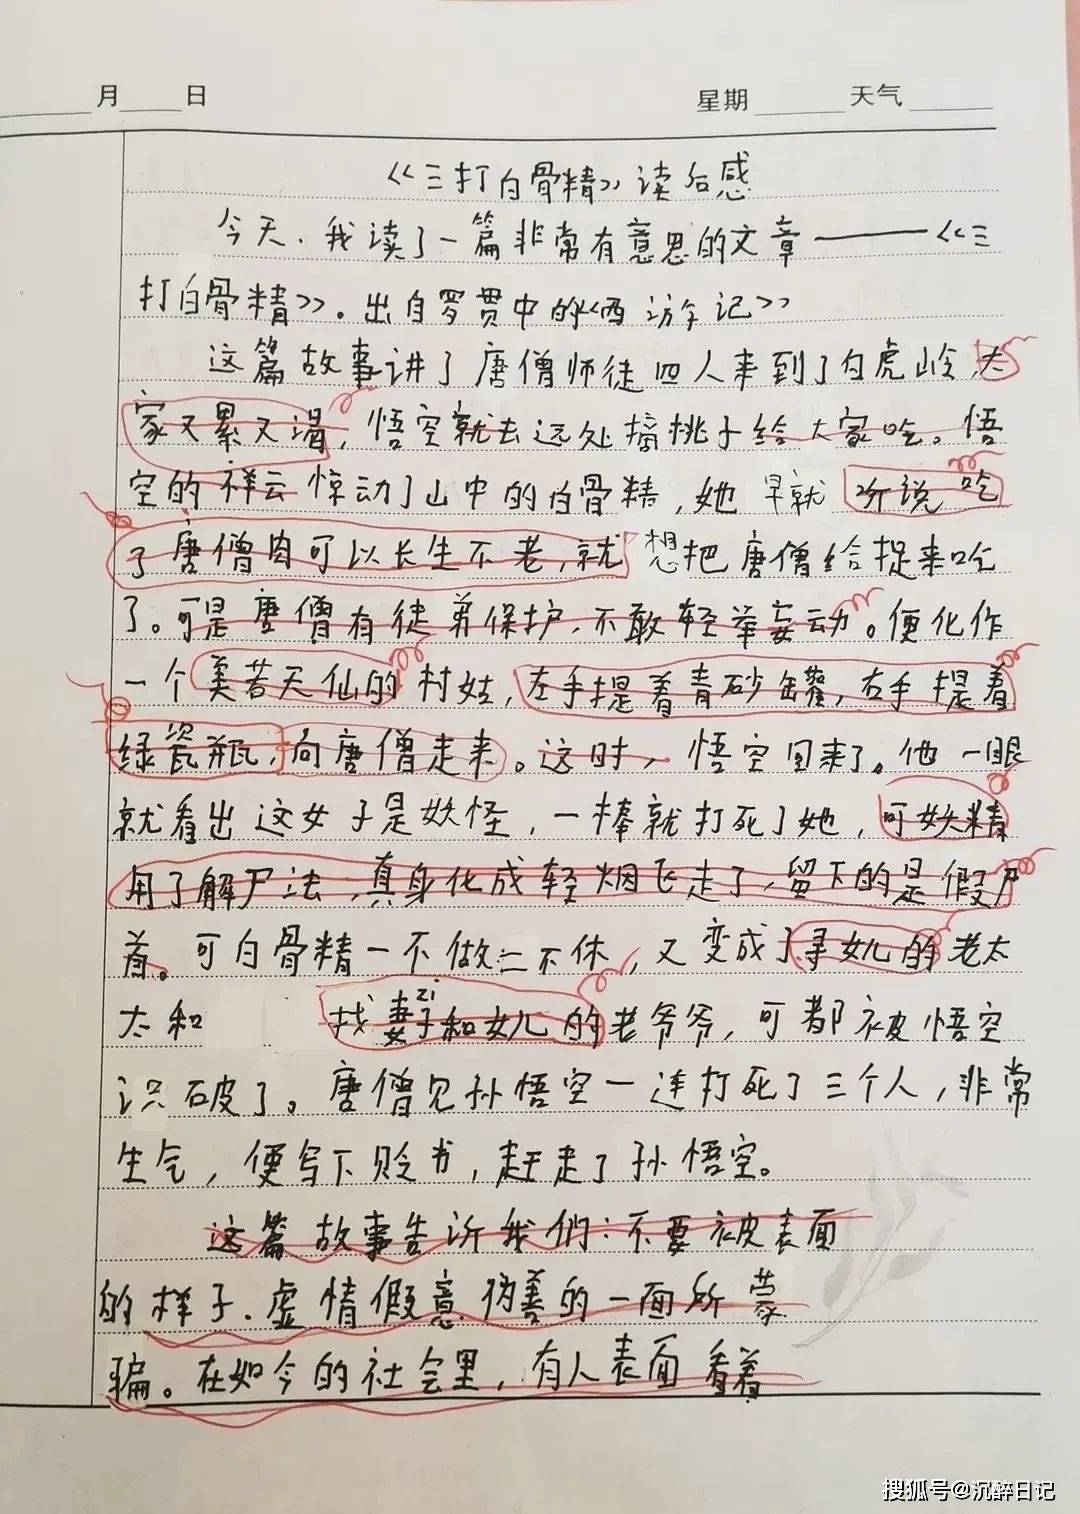 月 日 星期 天气
《三打白骨精》读后感
今天,我读了一篇非常有意思的文章——《三
打白骨精》。出自罗贯中的《西游记》
这篇故事讲了唐僧师徒四人来到了白虎岭,大
家又累又渴,悟空就去远处摘桃子给大家吃。悟
空的祥云惊动了山中的白骨精,她早就听说吃
了唐僧肉可以长生不老,就想把唐僧给捉来吃
了。可是唐僧有徒弟保护,不敢轻举妄动。便化作
一个美若天仙的村姑,左手提着青砂罐,右手提着
绿瓷瓶,向唐僧走来。这时,悟空回来了。他一眼
就看出这女子是妖怪,一棒就打死了她,可妖精
用了解尸法,真身化成轻烟飞走了,留下的是假尸
首。可白骨精一不做二不休,又变成了寻女儿的老太
太和 找妻子和女儿的老爷爷,可都被悟空
zi
识破了。唐僧见孙悟空一连打死了三个人,非常
生气,便写下贬书,赶走了孙悟空。
这篇故事告诉我们:不要被表面
的样子、虚情假意,伪善的一面所蒙
骗。在如今的社会里,有人表面看着
搜狐号@沉醉日记